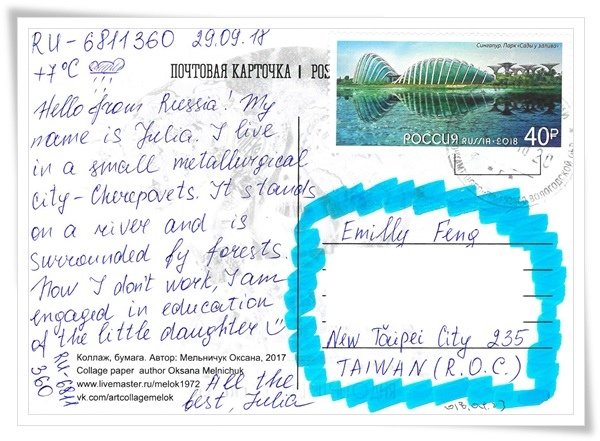 RU-6811360 29.09.18
+7°C
ПОЧТОВАЯ КАРТОЧКА | POS
Hello from Russia! My
name is Julia. I live
in a small metallurgical
city - Cherepovets. It stands
on a river and is
surrounded by forests.
Now I don't work, I am
engaged in education
of the little daughter
RU-6811
360
Коллаж, бумага. Автор: Мельничук Оксана, 2017
Collage paper author Oksana Melnichuk
www.livemaster.ru/melok1972
vk.com/artcollagemelok
All the
best, Julia
Сингапур. Парк «Сады у залива»
РОССИЯ RUSSIA·2018 40₽
ВОЛОГОДСКОЙ
Emilly Feng
New Taipei City 235
TAIWAN (R.O.C.)